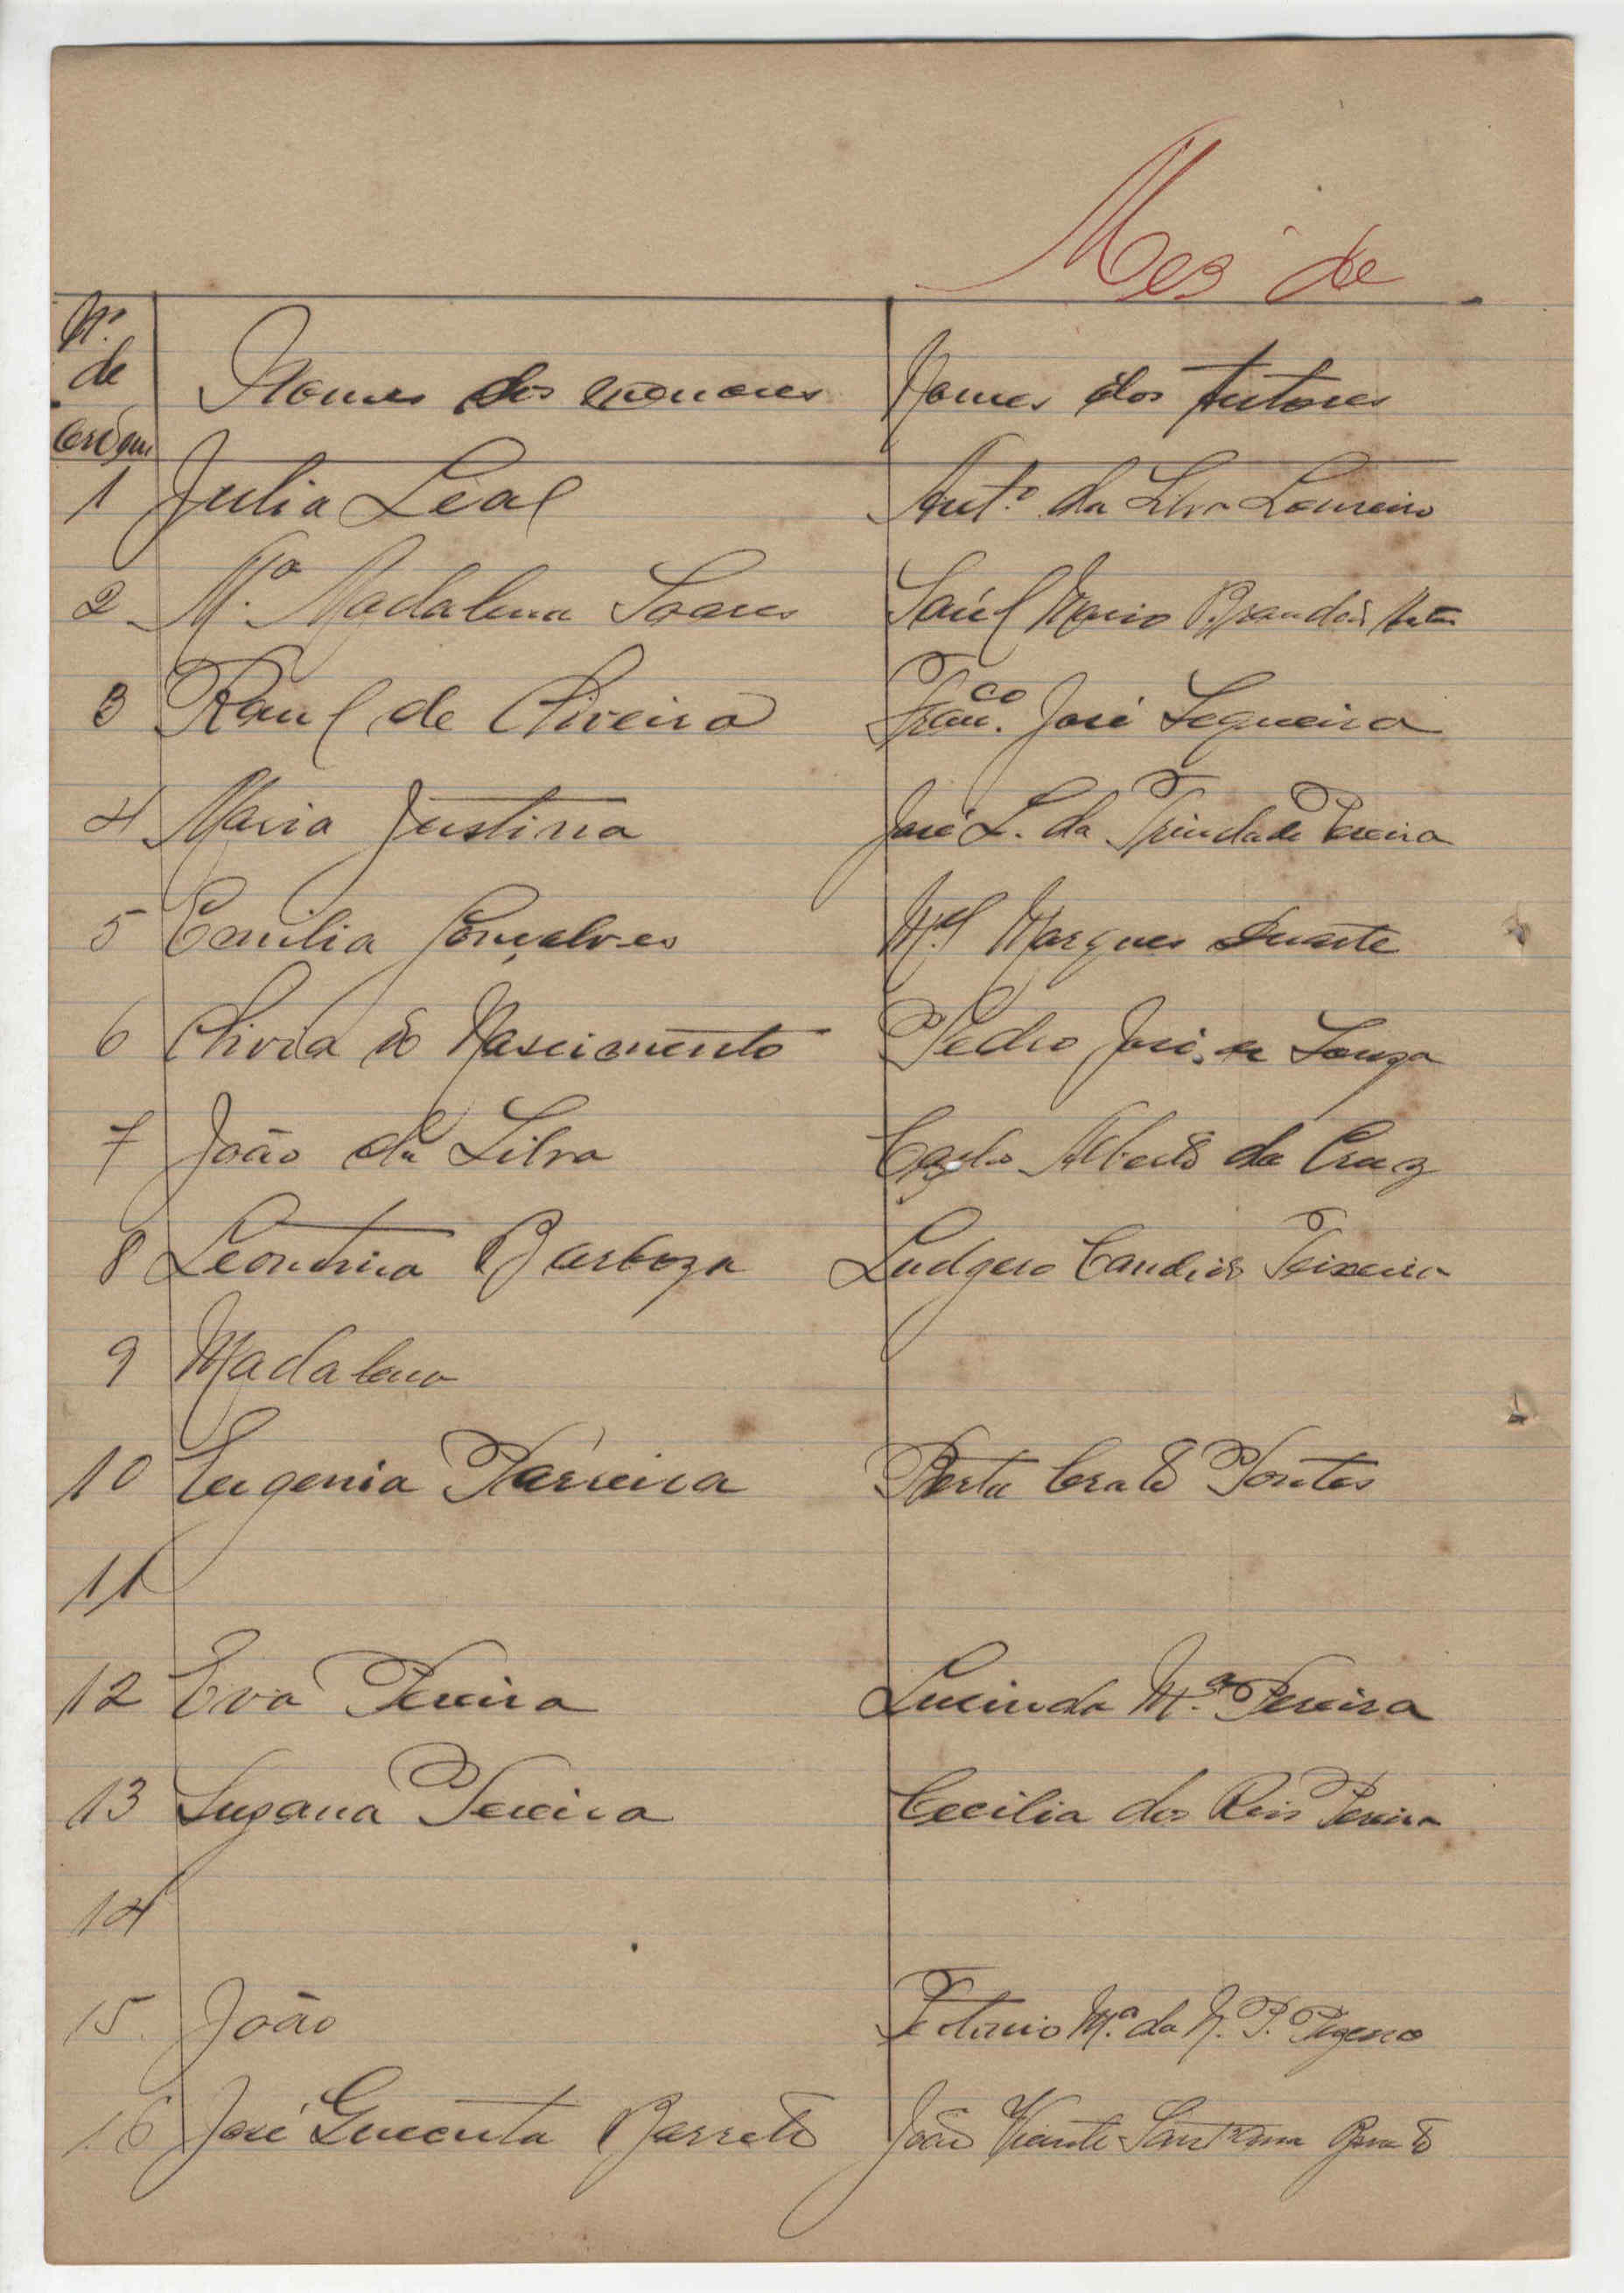 Mez de
Nº
de
ordem
Nomes dos menores Nomes dos tutores
1 Julia Leal Antº da Silva Loureiro
2 Mª Madalena Soares Saúl Mario Brandão
3 Raul de Oliveira Franco. José Sequeira
4 Maria Justina José L. da Trindade Pereira
5 Emilia Gonçalves Mel Marques Duarte
6 Olivia do Nascimento Pedro José de Souza
7 João da Silva Carlos Alberto da Cruz
8 Leontina Barboza Ludgero Candido Teixeira
9 Madalena
10 Eugenia Parreira Berta Crato Pontes
11
12 Eva Pereira Lucinda Mª Pereira
13 Suzana Pereira Cecilia dos Reis Pereira
14
15. João Mª da N. P.
16 José Barreto João Vicente Barreto